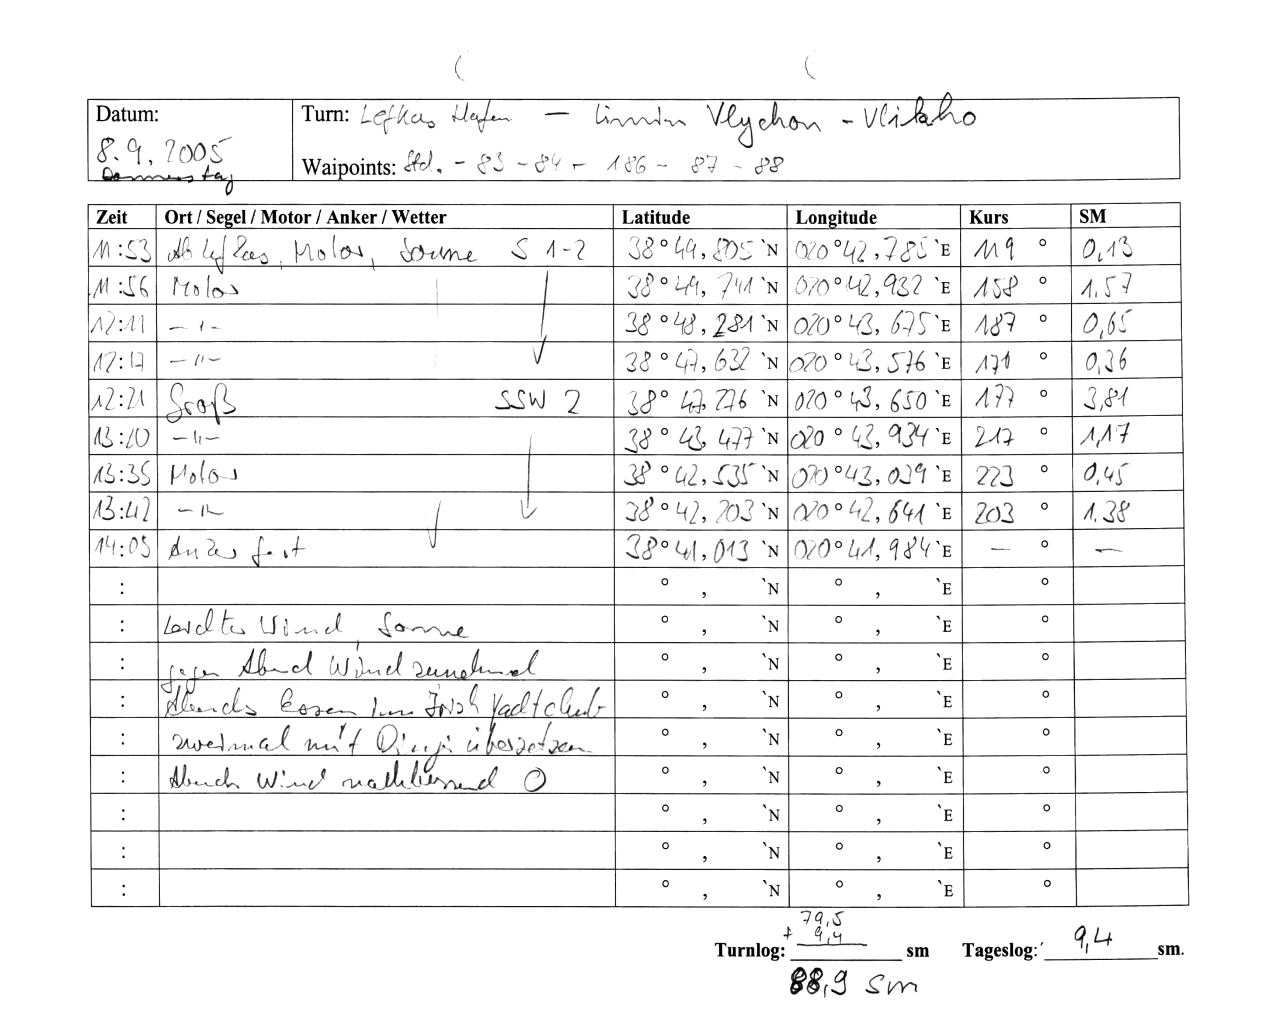 Datum: 8.9.2005 Donnerstag
Turn: Lefkas Hafen — Limin Vlychon - Vlikho
Waipoints: Std. - 83 - 84 - 186 - 87 - 88
Zeit Ort / Segel / Motor / Anker / Wetter Latitude Longitude Kurs SM
11:53 Ab Lefkas, Motor, Sonne S 1-2 38°49,805`N 020°42,785`E 119° 0,13
11:56 Motor 38°49,741`N 020°42,932`E 158° 1,57
12:11 -"- 38°48,281`N 020°43,675`E 187° 0,65
12:17 -"- 38°47,632`N 020°43,576`E 171° 0,36
12:21 Groß SSW 2 38°47,276`N 020°43,650`E 177° 3,81
13:20 -"- 38°43,477`N 020°43,934`E 217° 1,17
13:35 Motor 38°42,535`N 020°43,039`E 223° 0,45
13:42 -"- 38°42,203`N 020°42,641`E 203° 1,38
14:05 Anker fest 38°41,013`N 020°41,984`E — ° —
: ° , `N ° , `E °
: Leichter Wind, Sonne ° , `N ° , `E °
: gegen Abend Wind zunehmend ° , `N ° , `E °
: Abends Essen im Irish Yachtclub ° , `N ° , `E °
: zweimal mit Dingi übersetzen ° , `N ° , `E °
: Abends Wind nachlassend O ° , `N ° , `E °
: ° , `N ° , `E °
: ° , `N ° , `E °
: ° , `N ° , `E °
79,5
+ 9,4
Turnlog: sm Tageslog: 9,4 sm.
88,9 sm